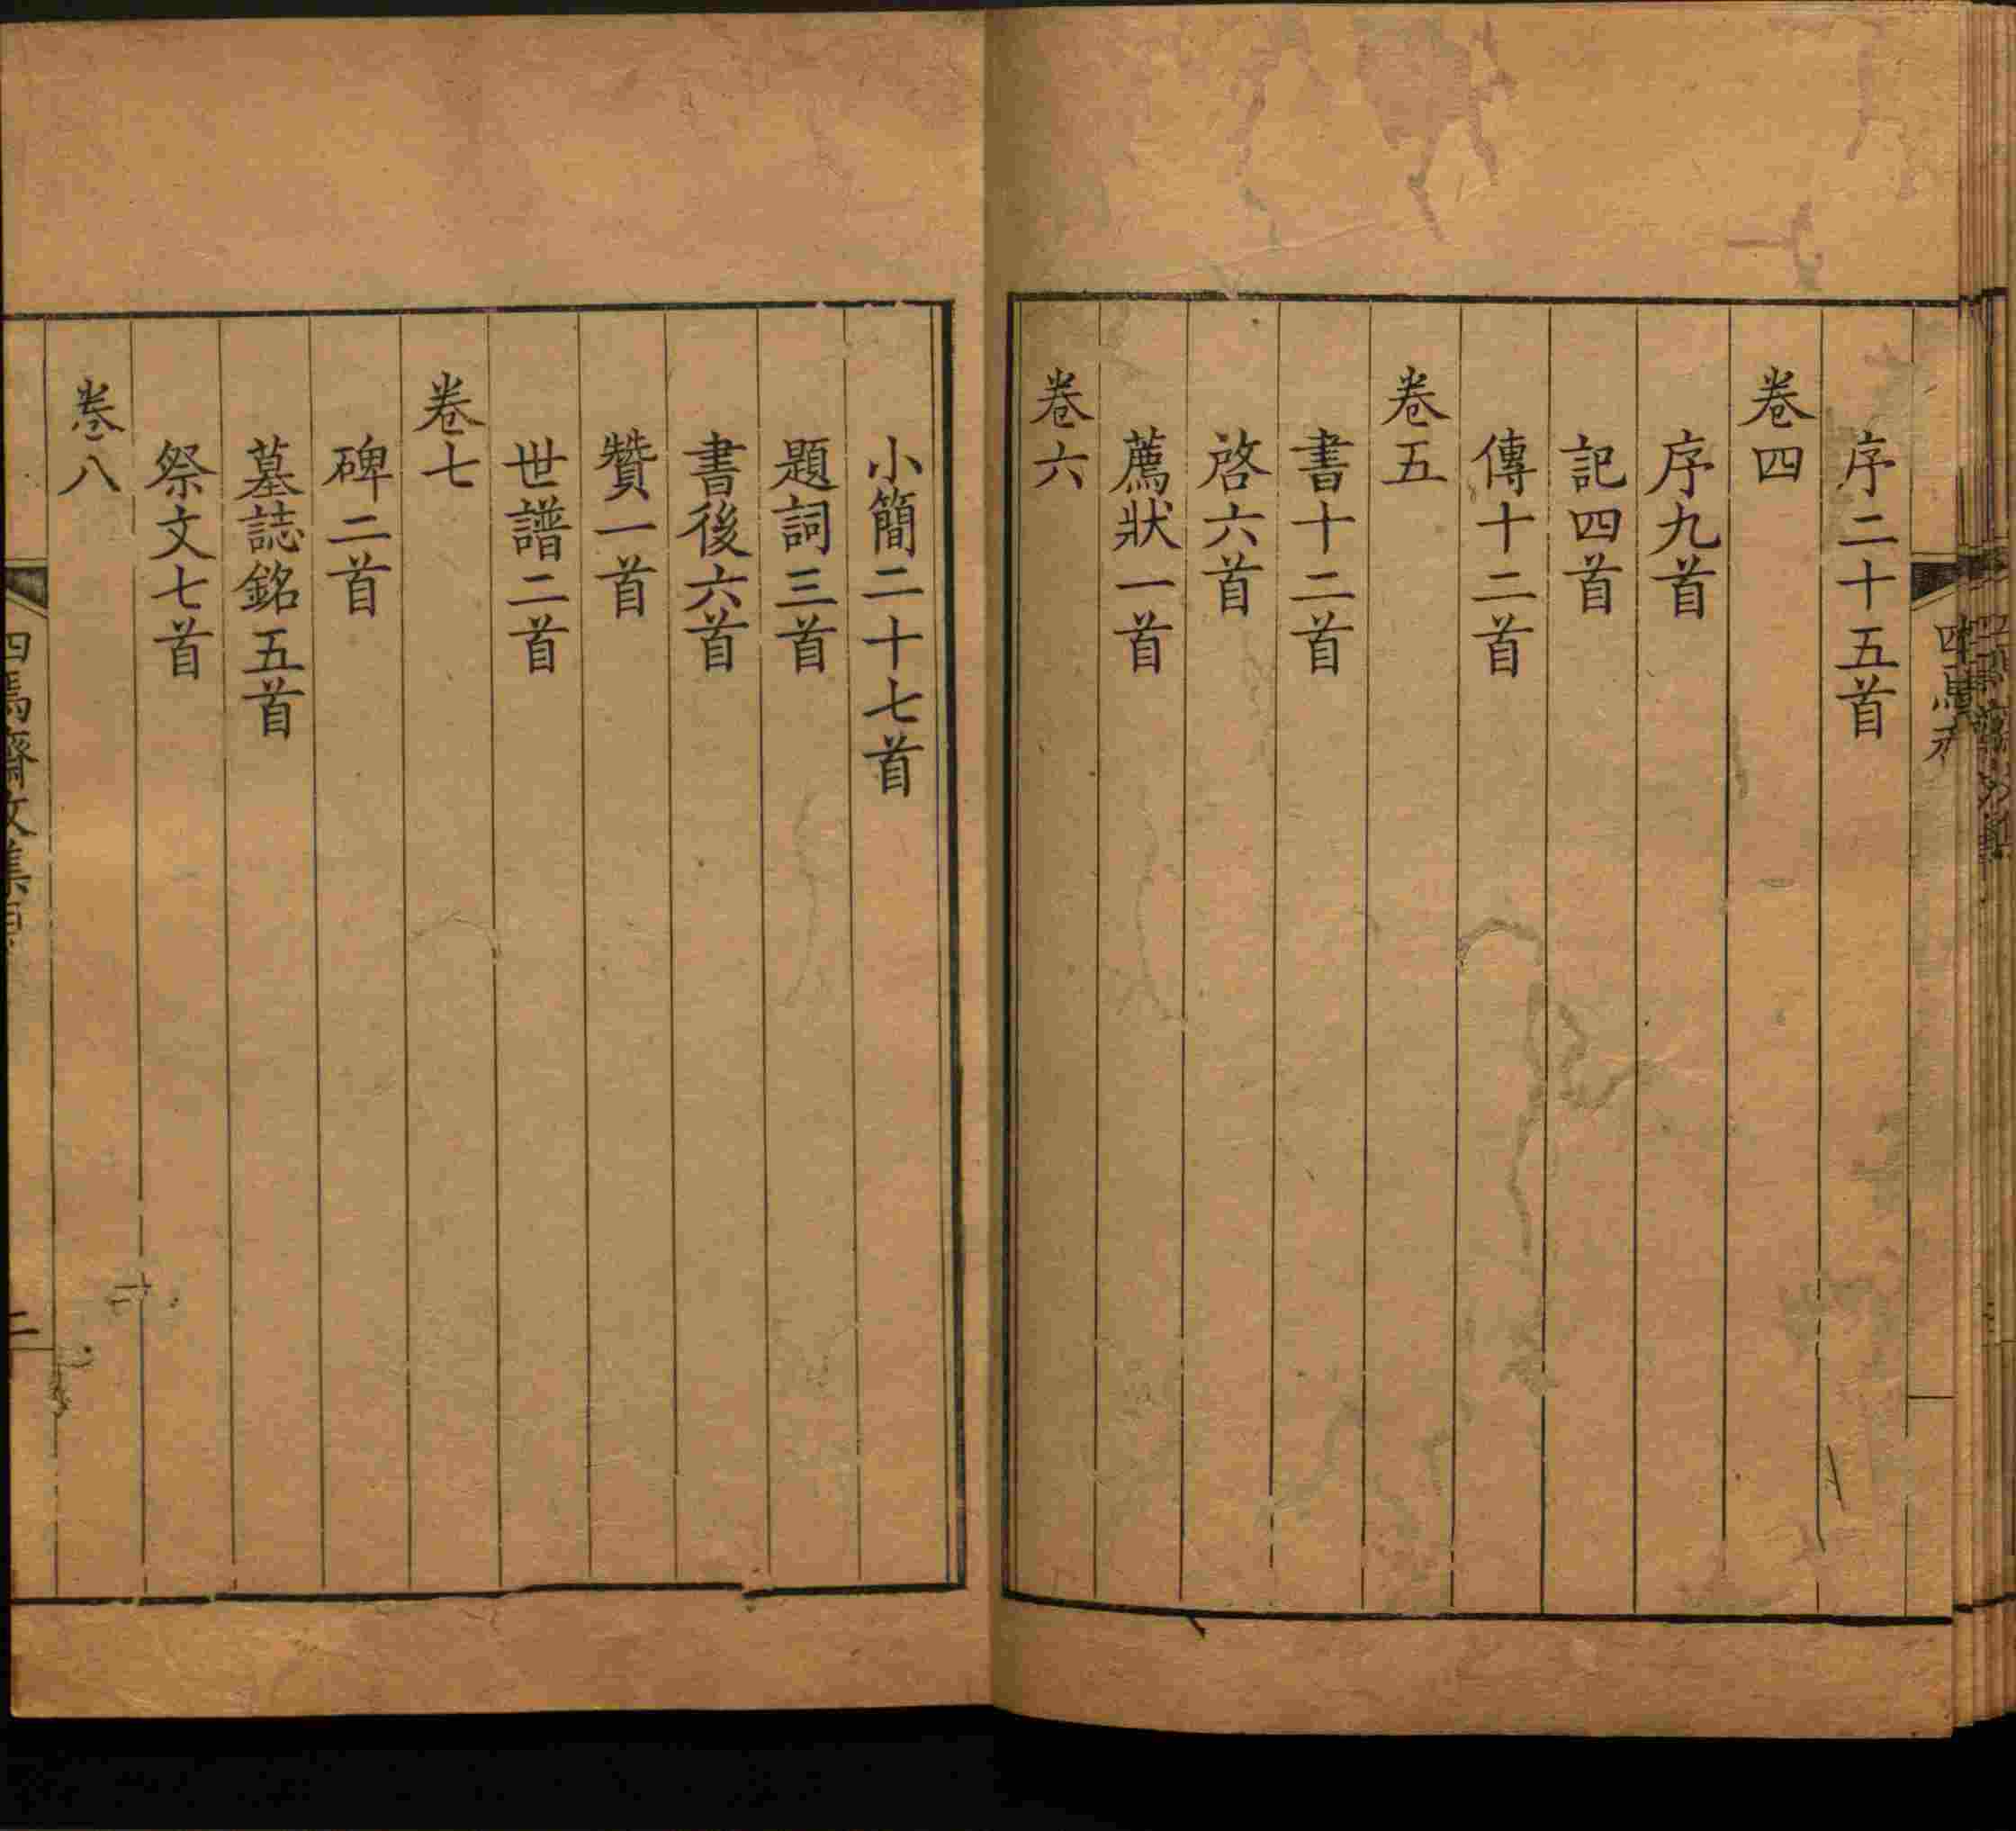 序二十五首
卷四
序九首
記四首
傳十二首
卷五
書十二首
啓六首
薦狀一首
卷六
小簡二十七首
題詞三首
書後六首
贊一首
世譜二首
卷七
碑二首
墓誌銘五首
祭文七首
卷八
四焉齋文集
二